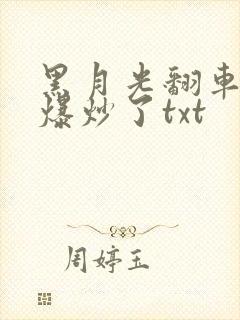 黑月光翻车
爆炒了txt
周婷玉